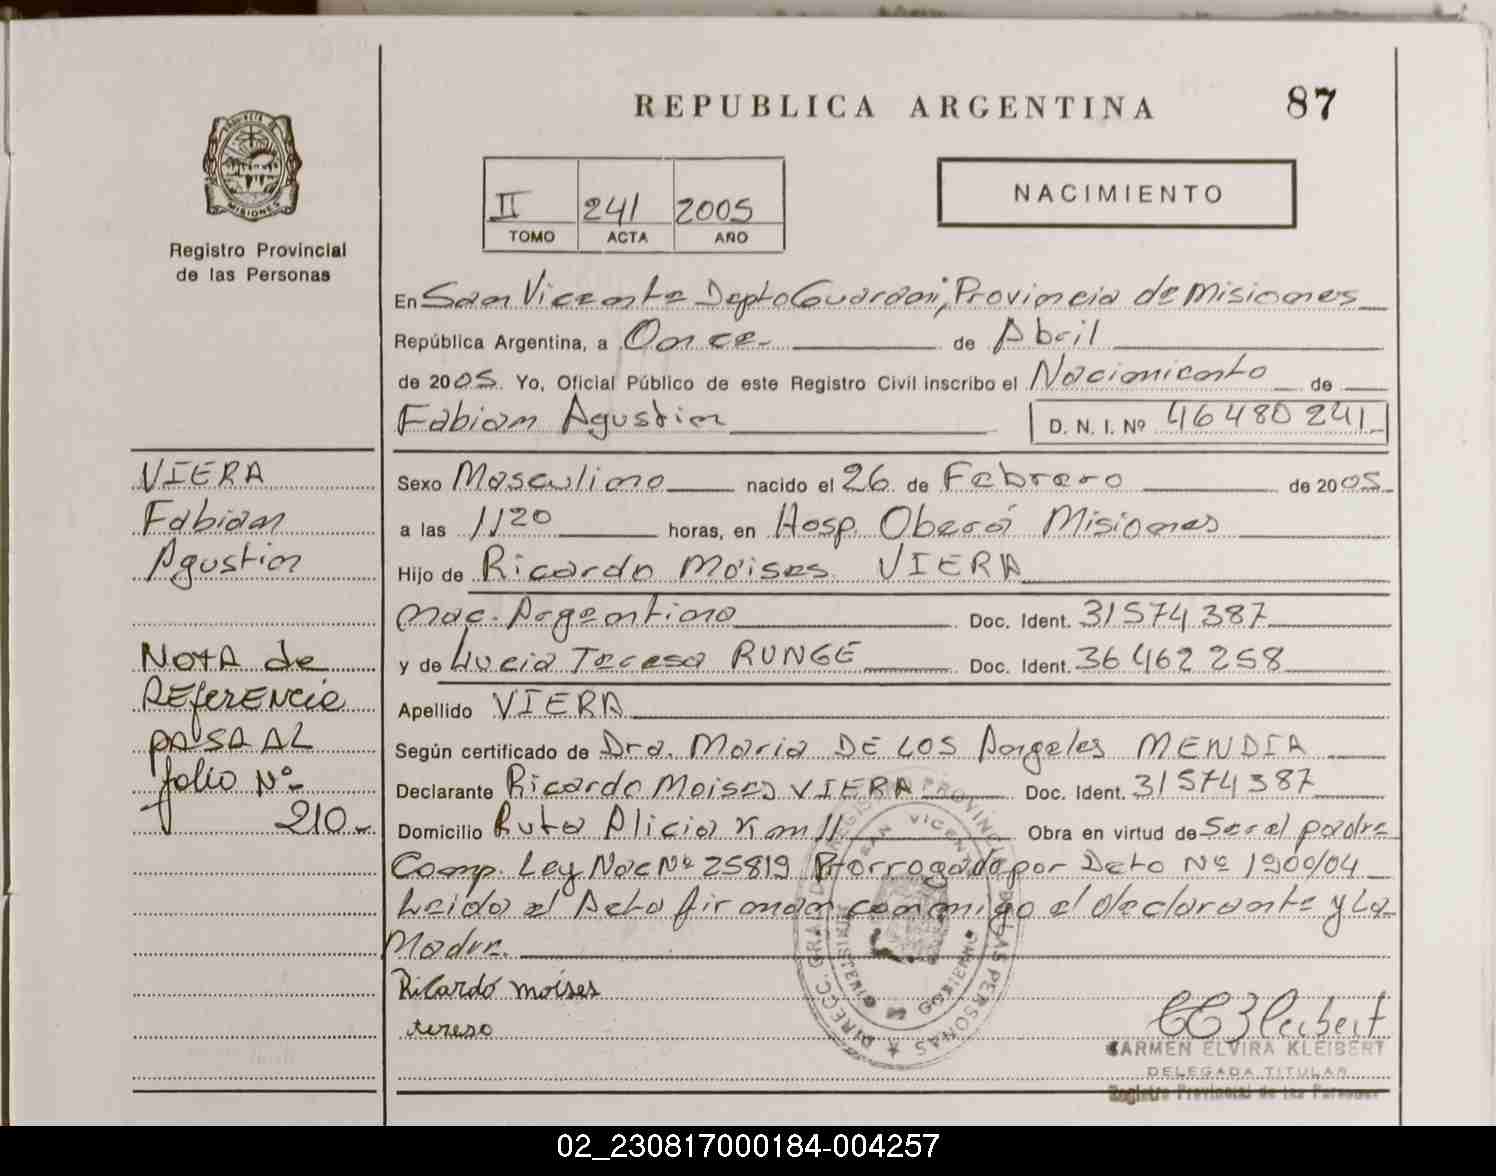 REPUBLICA ARGENTINA
87
PROVINCIA DE
MISIONES
Registro Provincial
de las Personas
II 241 2005
TOMO ACTA AÑO
NACIMIENTO
En San Vicente Depto Guarani, Provincia de Misiones
República Argentina, a Once de Abril
de 2005. Yo, Oficial Público de este Registro Civil inscribo el Nacimiento de
Fabian Agustin D. N. I. Nº 46 480 241
VIERA
Fabian
Agustin
NOTA de
REferENcie
PASA AL
folio Nº
210-
Sexo Masculino nacido el 26 de Febrero de 2005
a las 1120 horas, en Hosp. Oberá Misiones
Hijo de Ricardo Moises VIERA
nac. Argentino Doc. Ident. 31574387
y de Lucia Teresa RUNGE Doc. Ident. 36462258
Apellido VIERA
Según certificado de Dra. Maria DE LOS Angeles MENDIA
Declarante Ricardo Moises VIERA Doc. Ident. 31574387
Domicilio Ruta Alicia Km 11 Obra en virtud de Ser el padre
Comp. Ley Nac Nº 25819 Prorrogado por Dcto Nº 1900/04
Leido el Acta firman conmigo el declarante y La
Madre.
Ricardo moises
tereso
DIRECC. GRAL. DEL REGISTRO PROVINCIAL DE LAS PERSONAS
SAN VICENTE
MINISTERIO DE GOBIERNO
CARMEN ELVIRA KLEIBERT
DELEGADA TITULAR
Registro Provincial de las Personas
02_230817000184-004257